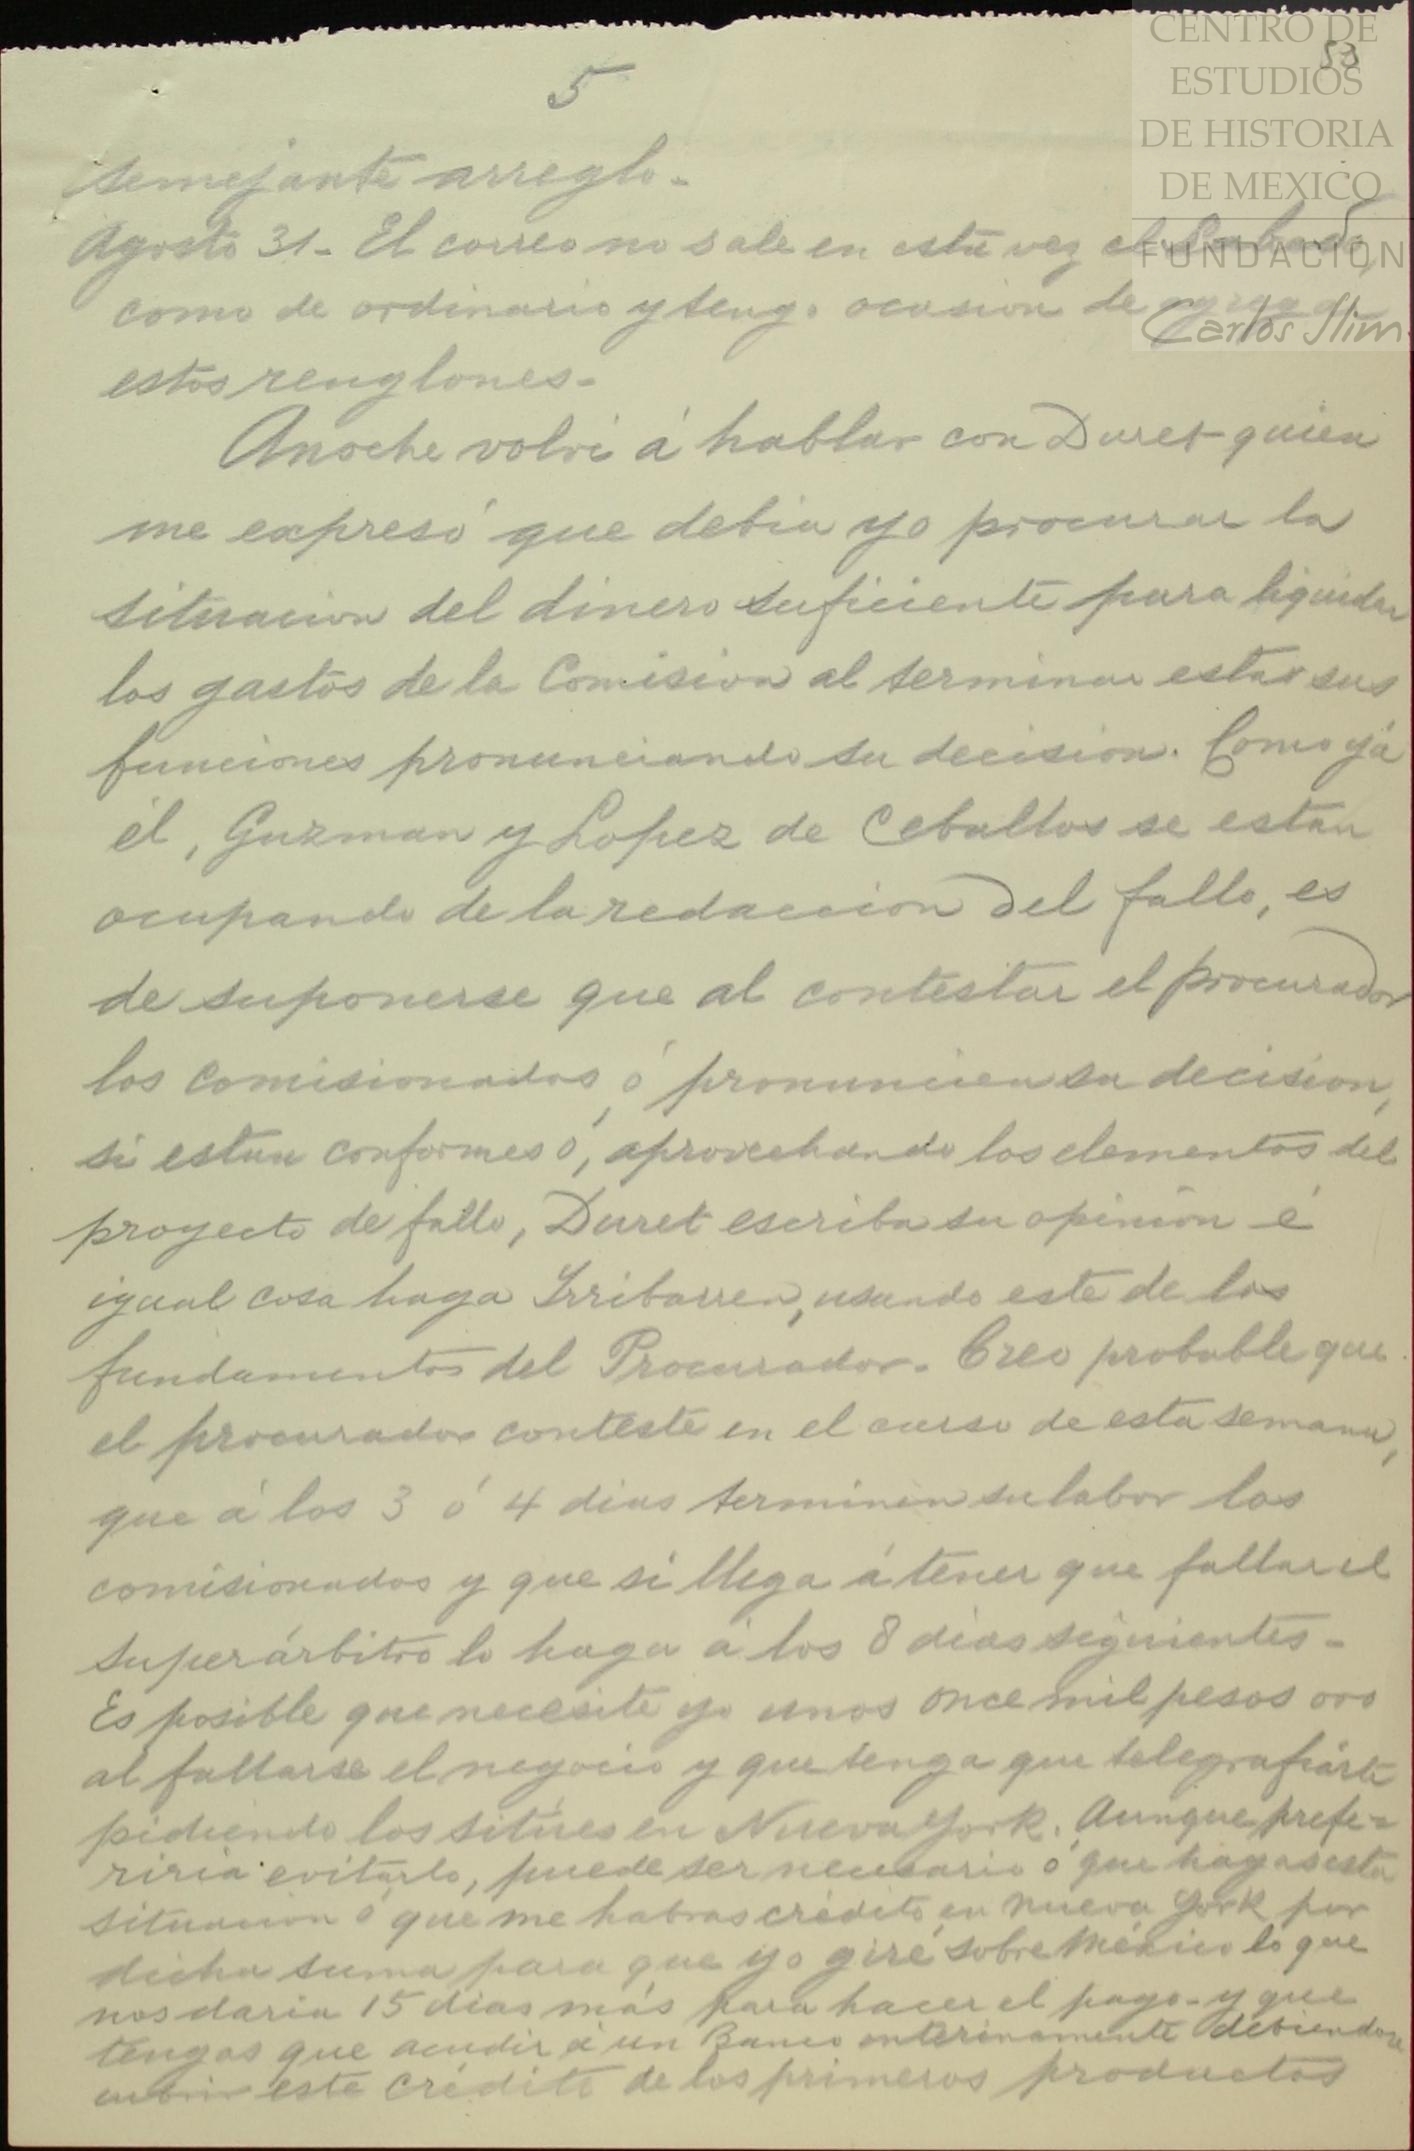 CENTRO DE
ESTUDIOS
DE HISTORIA
DE MEXICO
FUNDACION
Carlos Slim
53
5
semejante arreglo.-
Agosto 31- El correo no sale en esta vez el Sabado,
como de ordinario y tengo ocasion de agregar
estos renglones-
Anoche volví á hablar con Duret quien
me expresó que debia yo procurar la
situacion del dinero suficiente para liquidar
los gastos de la Comision al terminar esta sus
funciones pronunciando su decision. Como yá
él, Guzman y Lopez de Ceballos se estan
ocupando de la redaccion del fallo, es
de suponerse que al contestar el procurador
los comisionados, ó pronuncien su decision,
si estan conformes ó, aprovechando los elementos del
proyecto de fallo, Duret escriba su opinión é
igual cosa haga Irribarren, usando este de los
fundamentos del Procurador. Creo probable que
el procurador conteste en el curso de esta semana,
que á los 3 ó 4 dias terminen su labor los
comisionados y que si llega á tener que fallar el
superárbitro lo haga á los 8 dias siguientes-
Es posible que necesite yo unos once mil pesos oro
al fallarse el negocio y que tenga que telegrafiarte
pidiendo los sitúes en Nueva York. Aunque prefe-
riria evitarlo, puede ser necesario ó que hagas esta
situacion ó que me habras crédito en Nueva York por
dicha suma para que yo gire sobre México lo que
nos daria 15 dias más para hacer el pago- y que
tengas que acudir á un Banco interinamente debiendose
cubrir este crédito de los primeros productos